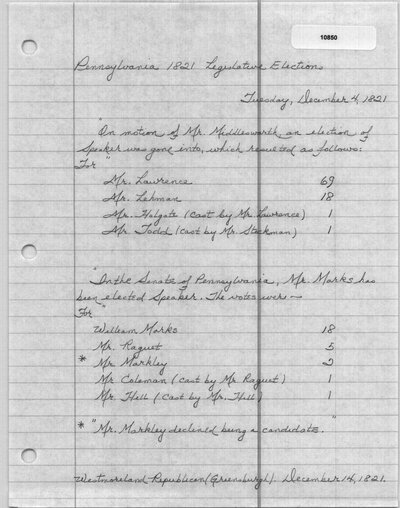 10850
Pennsylvania 1821 Legislative Election
Tuesday, December 4, 1821
"On motion of Mr. Middlesworth an election of
Speaker was gone into, which resulted as follows:
For"
Mr. Lawrence 69
Mr. Lehman 18
Mr. Holgate (cast by Mr. Lawrence) 1
Mr. Todd (cast by Mr. Stockman) 1
"In the Senate of Pennsylvania, Mr. Marks has
been elected Speaker. The votes were—
For"
William Marks 18
Mr. Raguet 5
* Mr. Markley 2
Mr Coleman (cast by Mr. Raguet) 1
Mr. Hall (cast by Mr. Hall) 1
* "Mr. Markley declined being a candidate."
Westmoreland Republican (Greensburgh). December 14, 1821.